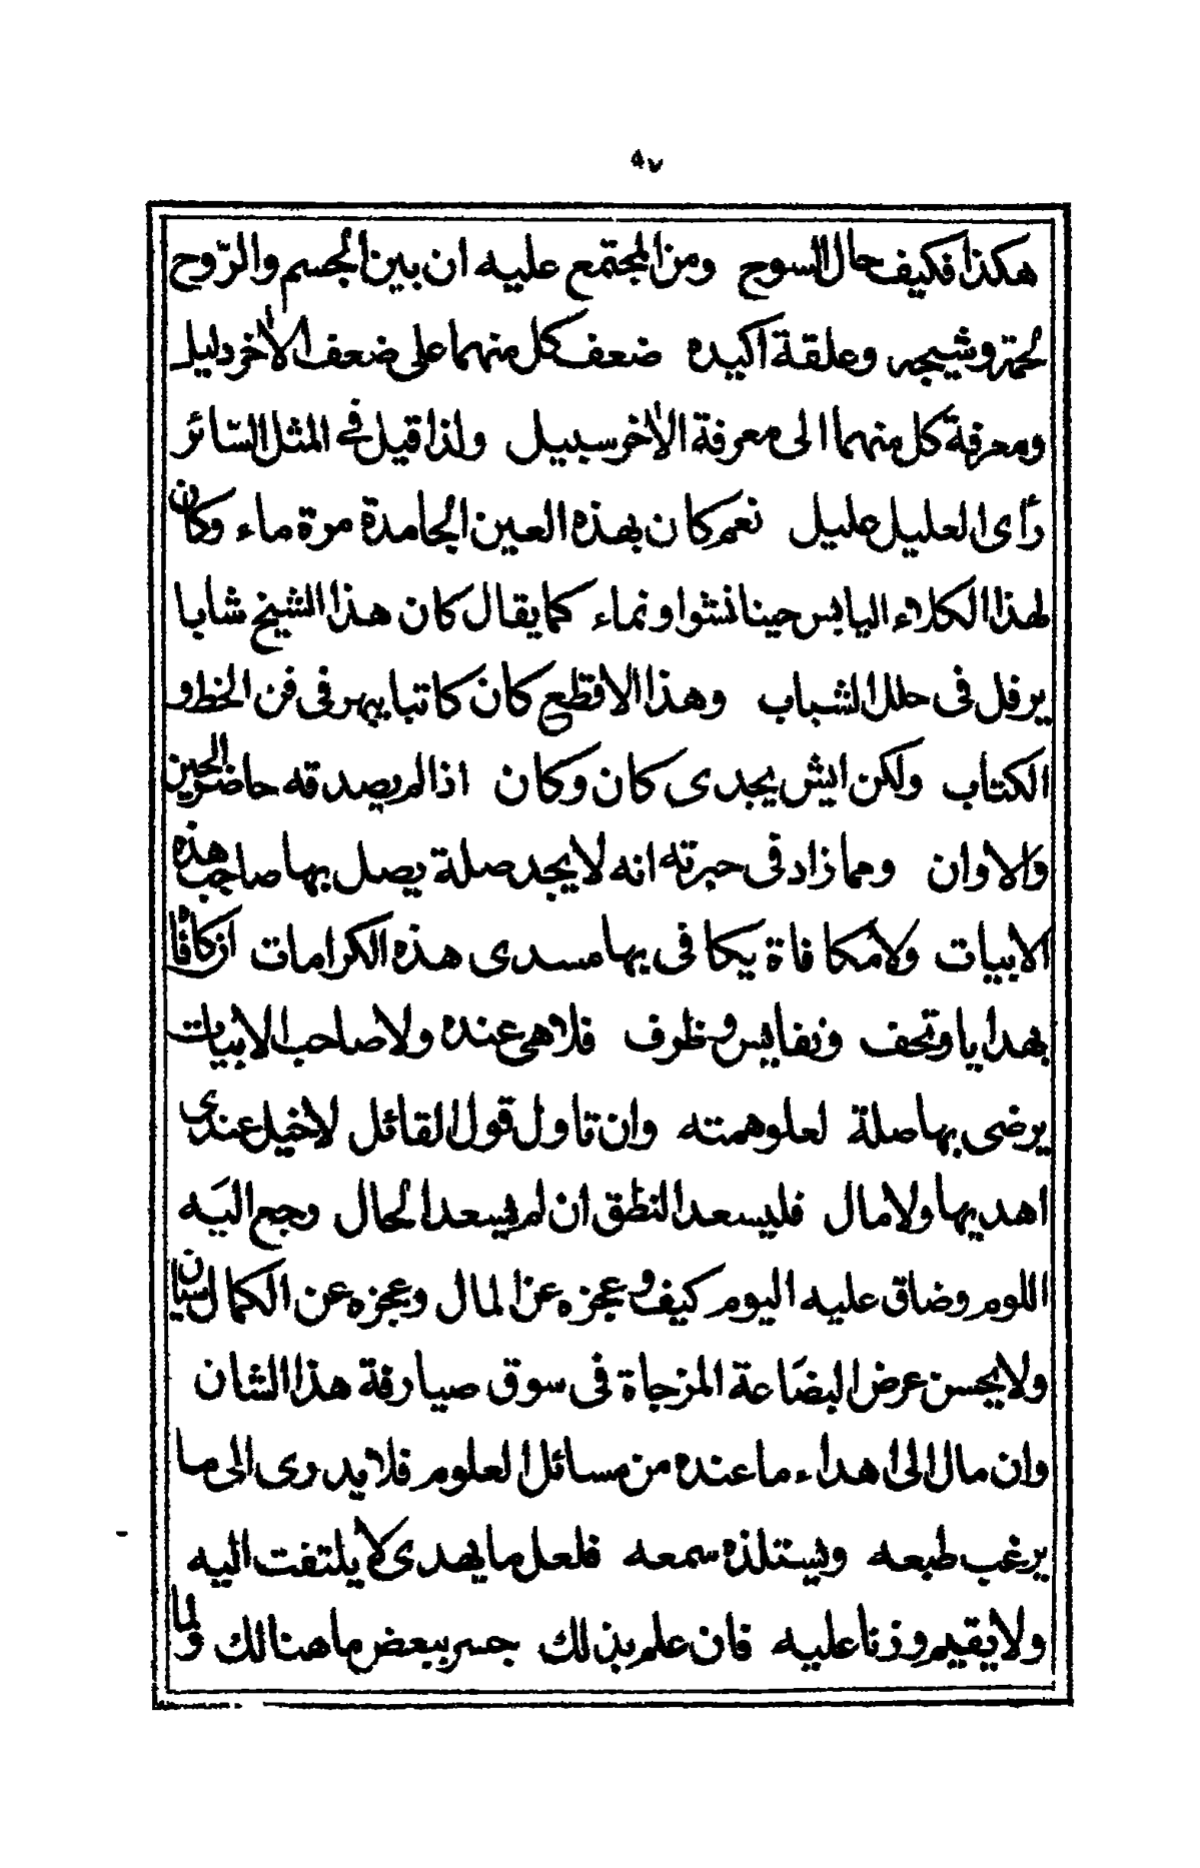 ٥٧
هكذا فكيف حال السوح ومن المجتمع عليه ان بين الجسم والرّوح
لحمة وشيجه وعلقة اكيده ضعف كل منهما على ضعف الاٰخر دليل
ومعرفة كل منهما الى معرفة الاٰخر سبيل ولذا قيل فى المثل السّائر
رأى العليل عليل نعم كان بهذه العين الجامدة مرة ماء وكان
لهذا الكلاء اليابس حينا نشوا ونماء كما يقال كان هذا الشيخ شابا
يرفل فى حلل الشباب وهذا الاقطع كان كاتبا يبهر فى فن الخط و
الكتاب ولكن ايش يجدى كان وكان اذا لم يصدقه حاضر الحين
والاوان ومما زاد فى حيرته انه لا يجد صلة يصل بها صاحب هذه
الابيات ولا مكافاة يكافى بها مسدى هذه الكرامات ان كافا
بهدايا وتحف ونفايس وظرف فلا هى عنده ولا صاحب الابيات
يرضى بها صلة لعلو همته وان تاول قول القائل لا خيل عندى
اهديها ولا مال فليسعد النطق ان لم يسعد الحال رجع اليه
اللوم وضاق عليه اليوم كيف وعجزه عن المال وعجزه عن الكمال سيان
ولا يحسن عرض البضاعة المزجاة فى سوق صيارفة هذا الشان
وان مال الى اهداء ما عنده من مسائل العلوم فلا يدرى الى ما
يرغب طبعه ويستلذه سمعه فلعل ما يهدى لا يلتفت اليه
ولا يقيم وزنا عليه فان علم بذلك جسر ببعض ما هنالك ولما